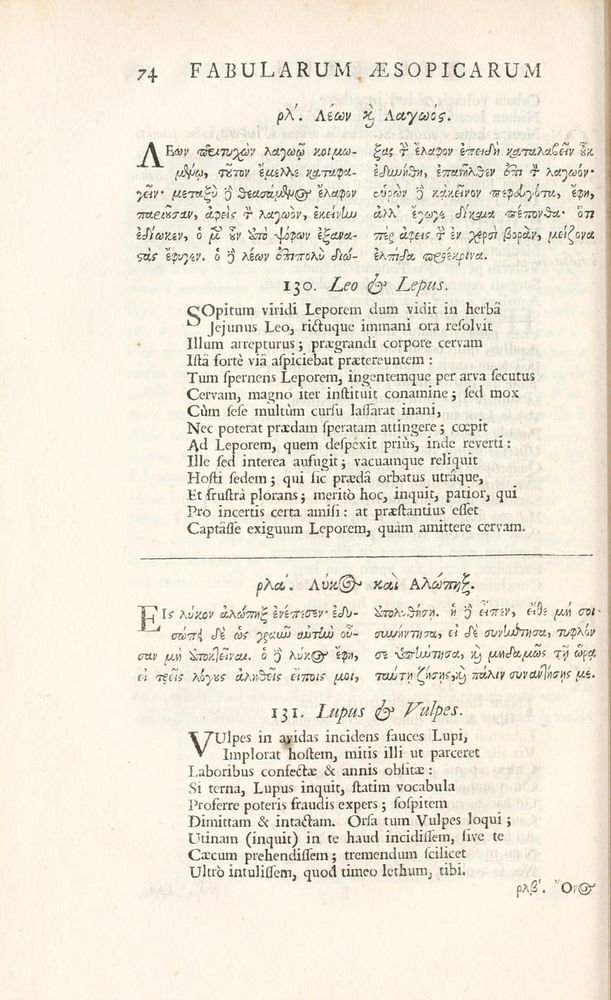 74 FABULARUM ÆSOPICARUM
ρλʹ. Λέων ϗ Λαγωός.
ΛΕων πειτυχὼν λαγωῷ κοιμω-
μϸύῳ, τῦτον ἔμελλε καταφα-
γεῖν· μεταξὺ ἢ θεασάμϸυος ἔλαφον
παριῦσαν, ἀφεὶς τ λαγωὸν, ἐκείνω
ἐδίωκεν, ὁ μ ὖν ὑπὸ ψόφων ἐξανα-
ςὰς ἔφυγεν. ὁ ἢ λέων ἐπιπολὺ διώ-
ξας τ ἔλαφον ἐπειδὴ καταλαβεῖν ὐκ
ἐδυνήθη, ἐπανῆλθεν ἐπὶ τ λαγωόν·
εὑρὼν ἢ κἀκεῖνον πεφδυγότα, ἔφη,
ἀλλʼ ἔγωγε δίκαια πέπονθα· ὅτι
πὲρ ἀφεὶς τ ἐν χερσὶ βορὰν, μείζονα
ἐλπίδα προέκρινα.
130. Leo & Lepus.
SOpitum viridi Leporem dum vidit in herbâ
Jejunus Leo, rictuque immani ora reſolvit
Illum arrepturus; prægrandi corpore cervam
Iſtâ fortè viâ aſpiciebat prætereuntem:
Tum ſpernens Leporem, ingentemque per arva ſecutus
Cervam, magno iter inſtituit conamine; ſed mox
Cùm ſeſe multùm curſu laſſarat inani,
Nec poterat prædam ſperatam attingere; cœpit
Ad Leporem, quem deſpexit priùs, inde reverti:
Ille ſed interea aufugit; vacuamque reliquit
Hoſti ſedem; qui ſic prædâ orbatus utrâque,
Et fruſtrà plorans; meritò hoc, inquit, patior, qui
Pro incertis certa amiſi: at præſtantius eſſet
Captâſſe exiguum Leporem, quàm amittere cervam.
ρλαʹ. Λύκος καὶ Αλώπηξ.
ΕΙς λύκον ἀλώπηξ ἐνέπεσεν· ἐδυ-
σώπει δὲ ὡς γραῦν αὐτὼ οὖ-
σαν μὴ ἀποκλεῖναι. ὁ ἢ λύκος ἔφη,
εἰ τρεῖς λόγυς ἀληθεῖς εἴποις μοι,
ἀπολυθήσῃ. ἡ ἢ εἶπεν, εἴθε μή σοι
συνήντησα, εἰ δὲ συνήντησα, τυφλόν
σε ὑπήντησα, ϗ μηδαμῶς τῇ ὥρᾳ
ταύτῃ ζήσῃς, ϗ πάλιν συναντήσῃς με.
131. Lupus & Vulpes.
VUlpes in avidas incidens fauces Lupi,
Implorat hoſtem, mitis illi ut parceret
Laboribus confectæ & annis obſitæ:
Si terna, Lupus inquit, ſtatim vocabula
Proferre poteris fraudis expers; ſoſpitem
Dimittam & intactam. Orſa tum Vulpes loqui;
Utinam (inquit) in te haud incidiſſem, ſive te
Cæcum prehendiſſem; tremendum ſcilicet
Ultrò intuliſſem, quod timeo lethum, tibi.
ρλβʹ. Ὄνος